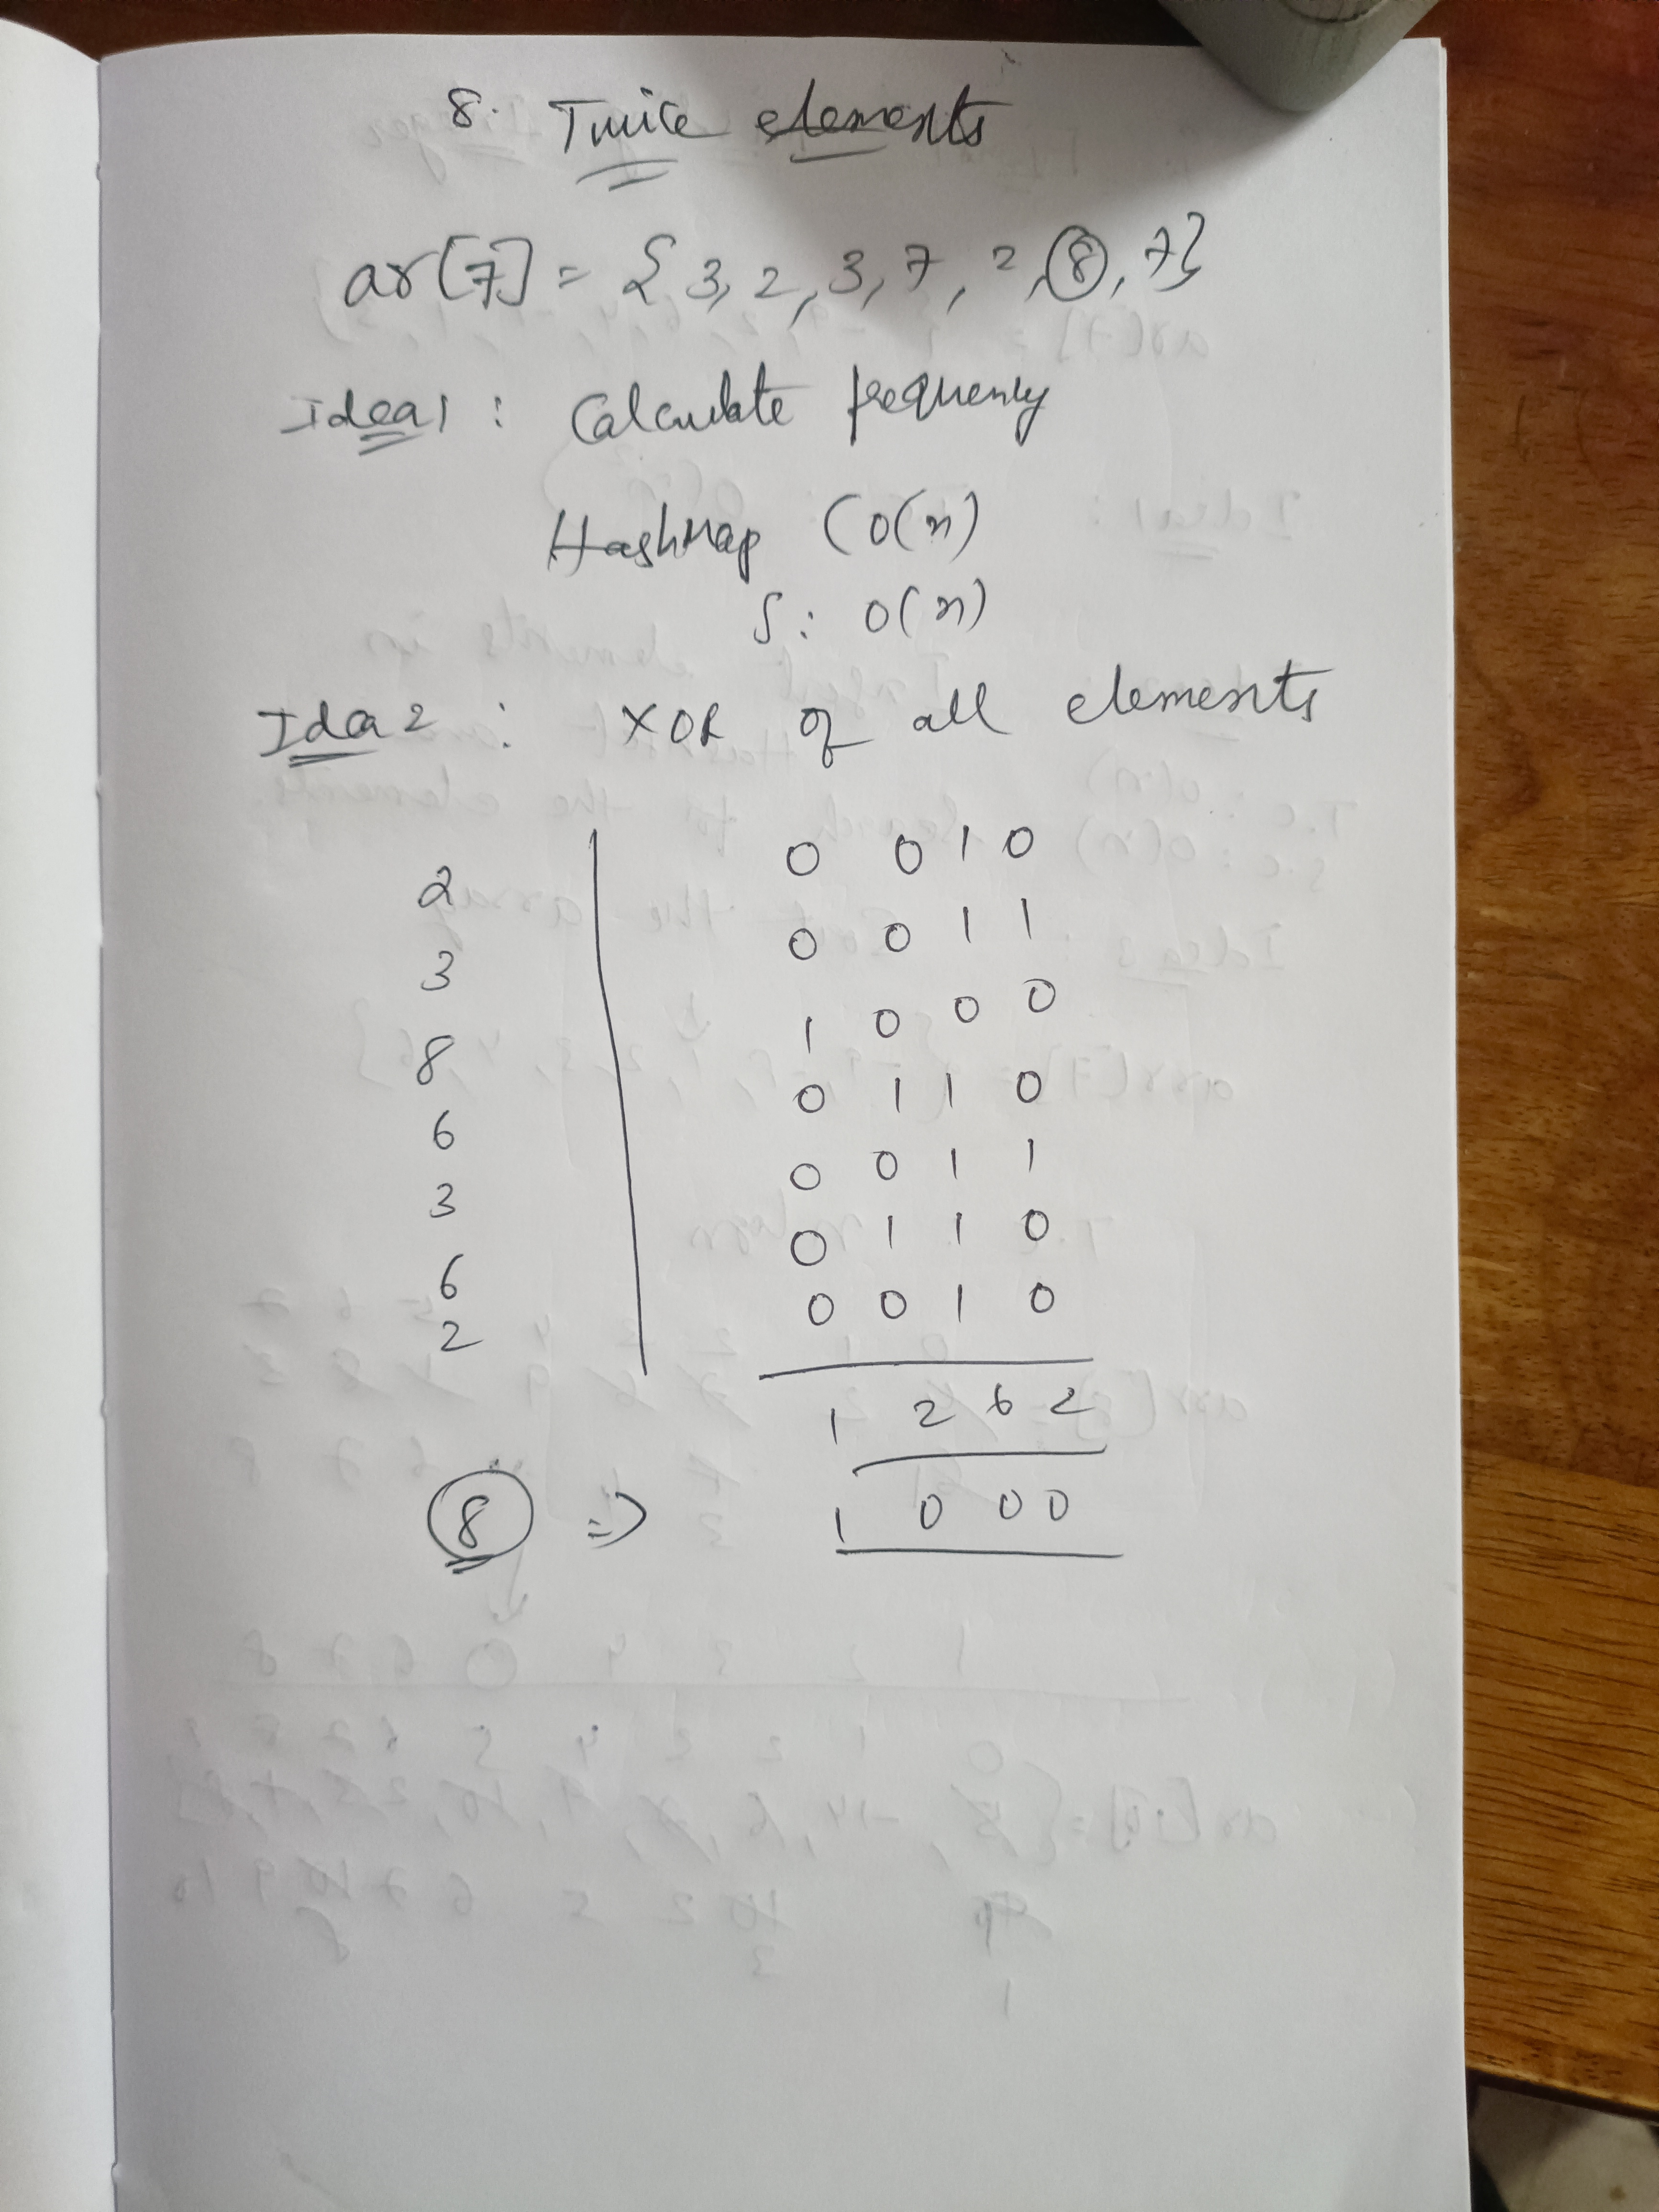 8. Twice elements
ar[7] = { 3, 2, 3, 7, 2, 8, 7}
Idea1 : Calculate frequency
HashMap (O(n)
S: O(n)
Idea 2 : XOR of all elements
2 | 0 0 1 0
3 | 0 0 1 1
8 | 1 0 0 0
6 | 0 1 1 0
3 | 0 0 1 1
6 | 0 1 1 0
2 | 0 0 1 0
1 2 6 2
8 => 1 0 0 0